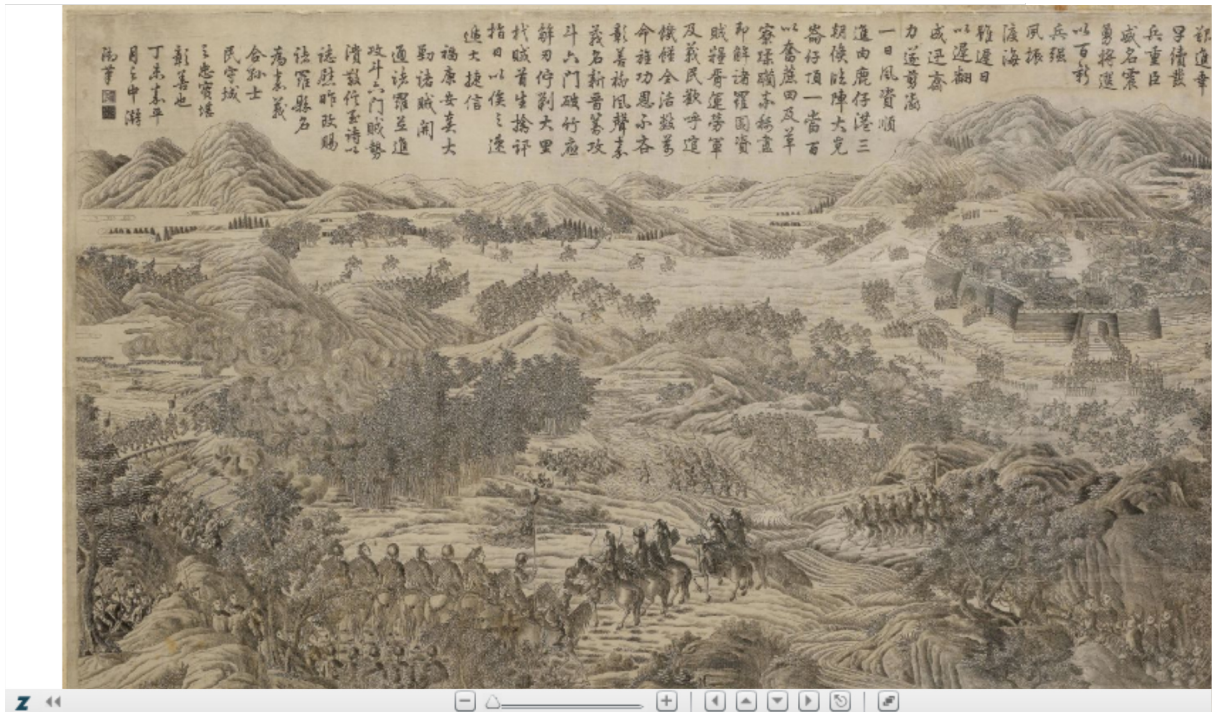 兵重臣
威名震
勇將選
以百
兵強
風振
渡海
雖遲日
以遲翻
成迅齋
力遂剪滅
一日風資順
進由鹿仔港三
朝候旺陣大克
崙仔頂一當百
以奮蔗田及草
寮蹂躪盡
即解諸羅圍資
賊糧胥運勞軍
及義民歡呼迎
饑饉全活數萬
命旌功恩不吝
彰善樹風聲嘉
義名新晉籌攻
斗六門破竹應
解刃佇剿大里
杙賊首生擒訊
指日以俟之速
遞大捷信
福康安奏大
勦諸賊開
通諸羅並進
攻斗六門賊勢
潰散作至詩以
誌慰昨改賜
諸羅縣名
為嘉義
士
民守城
之忠實堪
彰善也
丁未嘉平
月之中澣
御筆